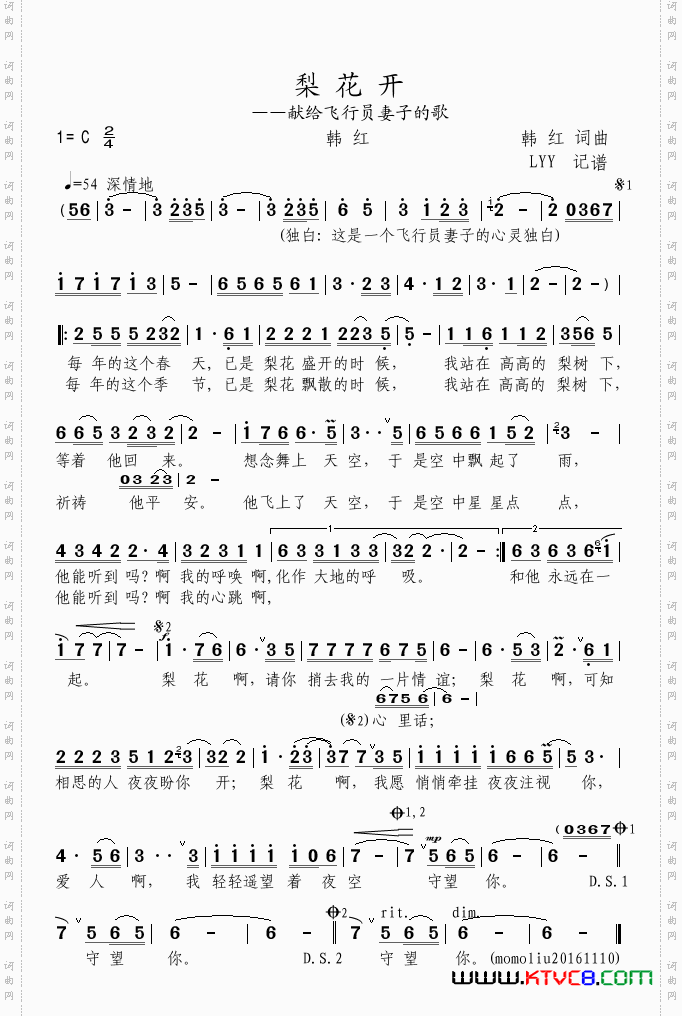 梨 花 开
——献给飞行员妻子的歌
1= C 2/4 韩 红 韩 红 词曲
LYY 记谱
♩=54 深情地 𝄋1
(56 | 3 - | 3 235 | 3 - | 3 235 | 6 5 | 3 1 2 3 | 2 - | 2 0367 |
(独白: 这是一个飞行员妻子的心灵独白)
1 7 1 7 1 3 | 5 - | 6 5 6 5 6 1 | 3 · 2 3 | 4 · 1 2 | 3 · 1 | 2 - | 2 - ) |
‖: 2 5 5 5 5 2 3 2 | 1 · 6 1 | 2 2 2 1 2 2 3 5 | 5 - | 1 1 6 1 1 1 2 | 3 5 6 5 |
每 年的这个春 天, 已是 梨花 盛开的时 候, 我站在 高高的 梨树 下,
每 年的这个季 节, 已是 梨花 飘散的时 候, 我站在 高高的 梨树 下,
6 6 5 3 2 3 2 | 2 - | 1 7 6 6 · 5 | 3 · · 5 | 6 5 6 6 1 5 2 | 3 - |
等着 他回 来。 想念舞上 天 空, 于 是空 中飘 起了 雨,
03 23 | 2 -
祈祷 他平 安。 他飞上了 天 空, 于 是空 中星 星点 点,
4 3 4 2 2 · 4 | 3 2 3 1 1 | 6 3 3 1 3 3 | 3 2 2 · | 2 - :‖ 6 3 6 3 6 1 |
他能听到 吗? 啊 我的呼唤 啊, 化作 大地的呼 吸。 和他 永远在一
他能听到 吗? 啊 我的心跳 啊,
𝄋2
1 7 7 | 7 - | 1 · 7 6 | 6 · 3 5 | 7 7 7 7 6 7 5 | 6 - | 6 · 5 3 | 2 · 6 1 |
起。 梨 花 啊, 请你 捎去我的 一片情 谊; 梨 花 啊, 可知
6 7 5 6 | 6 - |
(𝄋2) 心 里话;
2 2 2 3 5 1 2 3 | 3 2 2 | 1 · 2 3 | 3 7 7 3 5 | 1 1 1 1 1 6 6 5 | 5 3 · |
相思的人 夜夜盼你 开; 梨 花 啊, 我愿 悄悄牵挂 夜夜注视 你,
𝄌1,2
(0367 𝄌1
4 · 5 6 | 3 · · 3 | 1 1 1 1 1 0 6 | 7 - | 7 mp 5 6 5 | 6 - | 6 - ‖
爱 人 啊, 我 轻轻遥望 着 夜 空 守望 你。 D.S.1
𝄌2 rit. dim.
7 5 6 5 | 6 - | 6 - ‖ 7 5 6 5 | 6 - | 6 - ‖
守 望 你。 D.S.2 守 望 你。 (momoliu20161110)
www.KTVC8.com